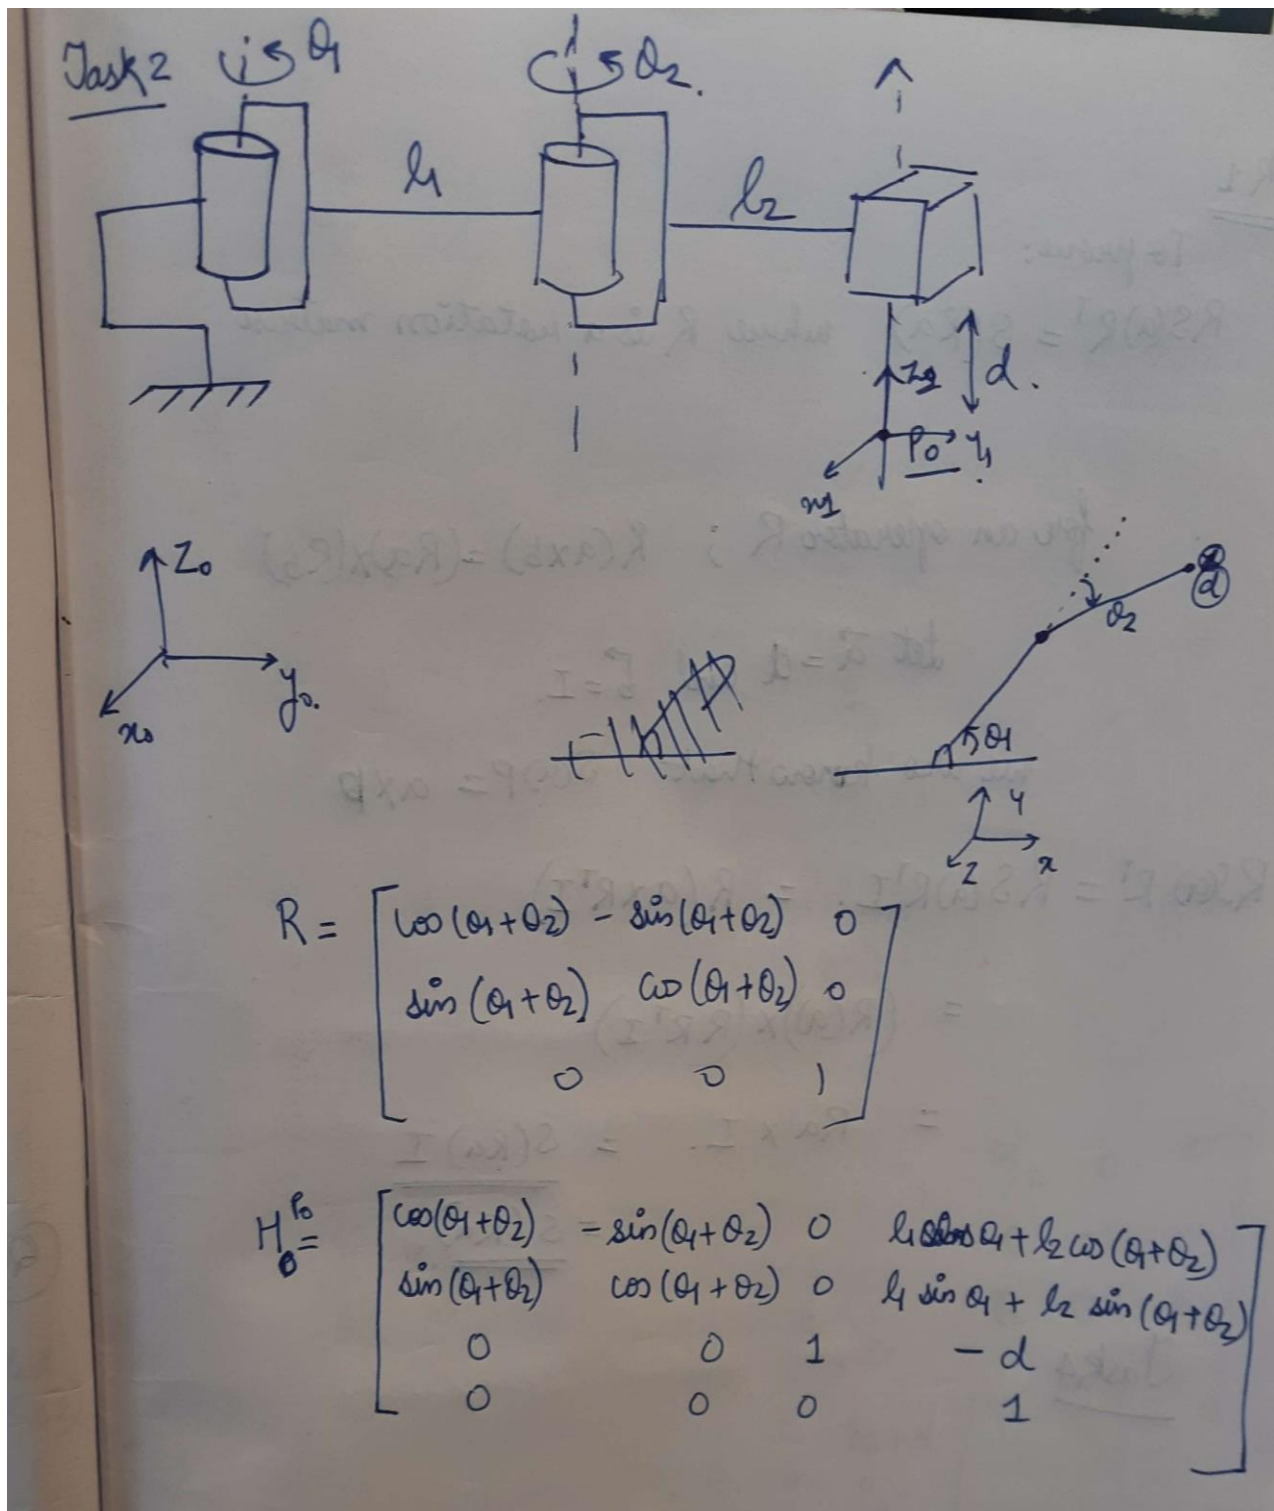 Task 2 θ1 θ2.
l1 l2
z1 d.
P0 y1
x1
Z0
y0.
x0
θ2 d
θ1
y
z x
R = [ cos(θ1+θ2) - sin(θ1+θ2) 0
sin(θ1+θ2) cos(θ1+θ2) 0
0 0 1 ]
H0^P0 = [ cos(θ1+θ2) - sin(θ1+θ2) 0 l1 cos θ1 + l2 cos(θ1+θ2)
sin(θ1+θ2) cos(θ1+θ2) 0 l1 sin θ1 + l2 sin(θ1+θ2)
0 0 1 - d
0 0 0 1 ]